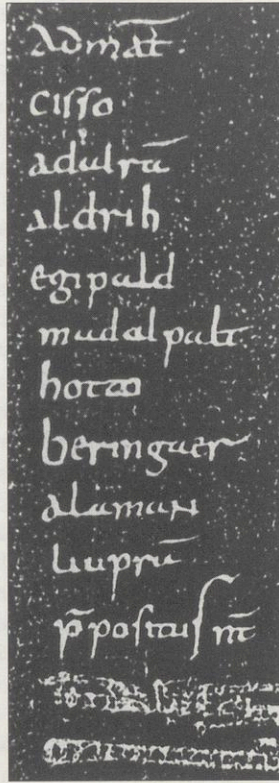 Admat̄.
cisso
adulrū
aldrih
egipald
mudalpalt
hotto
beringuer
alaman
liuprā
p̄positus m̄